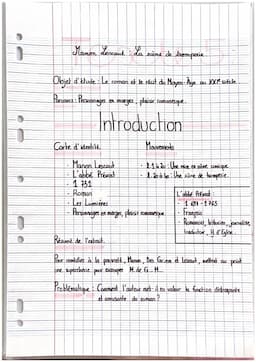 Manon Lescaut : La scène de tromperie.
Objet d'étude : Le roman et le récit du Moyen-Âge au XXIe siècle.
Parcours : Personnages en marges, plaisir romanesque.
Introduction
Carte d'identité.
- Manon Lescaut
- L'abbé Prévost
- 1731
- Roman
- Les Lumières
- Personnages en marges, plaisir romanesque
Mouvements
l. 1 à 20 : Une mise en scène comique
: Une scène de tromperie.
L'abbé Prévost :
- 1697 - 1763
- Français
- Romancier, historien, journaliste,
traducteur, d'Église.
Résumé de l'extrait.
Pour remédier à la pauvreté, Manon, Des Grieux et Lescaut, mettent au point
une supercherie pour escroquer M. de G... M...
Problématique : Comment l'auteur met-il en valeur la fonction
et amusante du roman ?